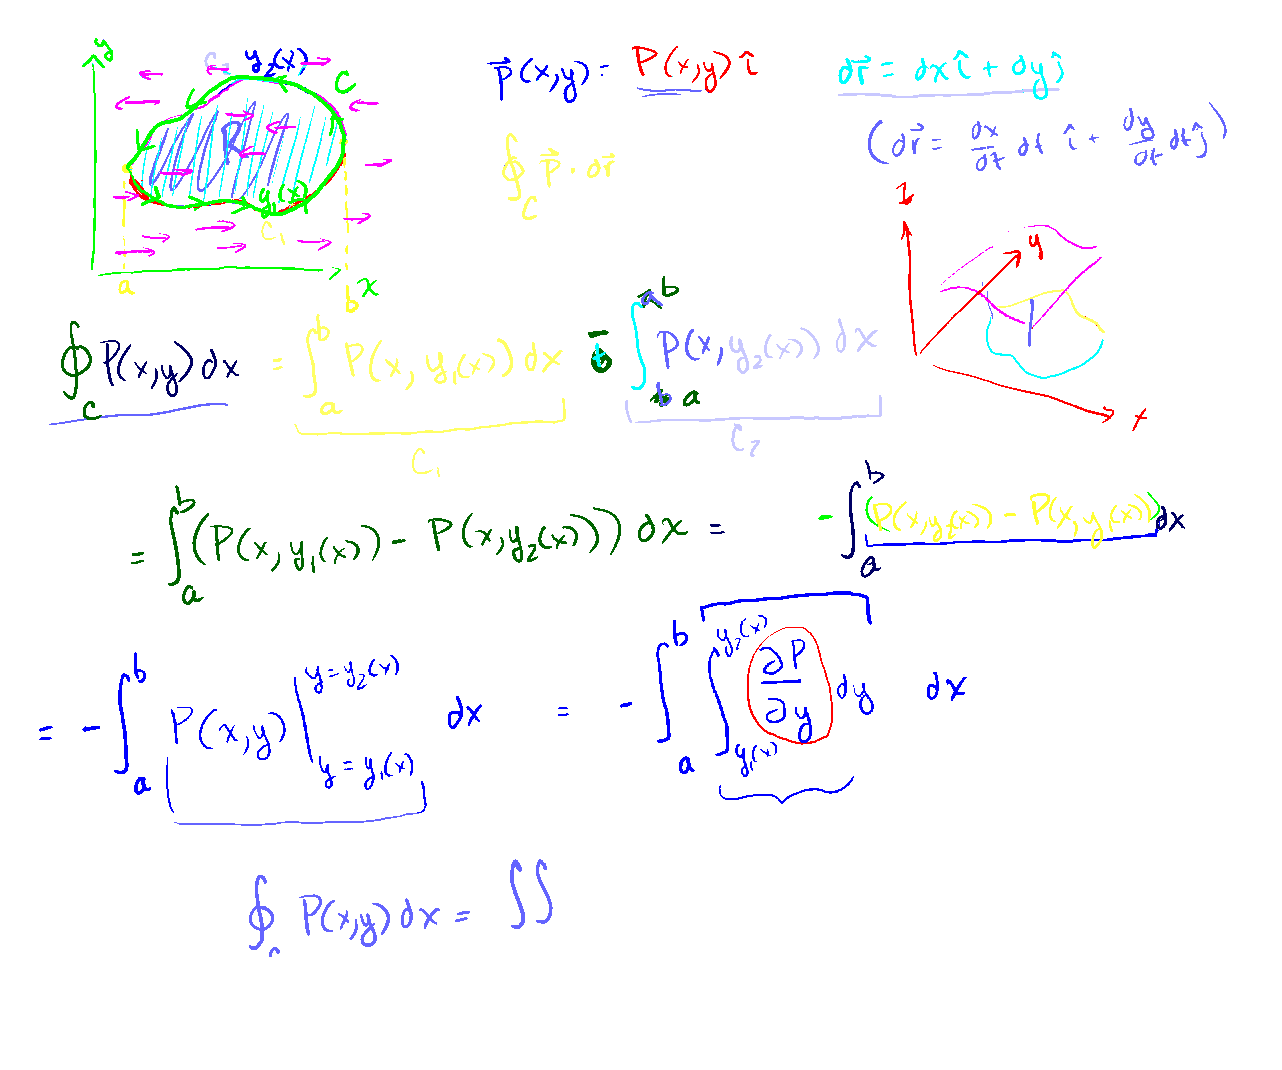 y C₂ y₂(x) C
R
y₁(x)
C₁
a b x
p⃗(x,y) = P(x,y) î
dr⃗ = dx î + dy ĵ
(dr⃗ = dx/dt dt î + dy/dt dt ĵ)
∮_C p⃗ · dr⃗
z y x
∮_C P(x,y) dx = ∫_a^b P(x, y₁(x)) dx - ∫_a^b P(x, y₂(x)) dx
C₁ C₂
= ∫_a^b (P(x, y₁(x)) - P(x, y₂(x))) dx = - ∫_a^b (P(x,y₂(x)) - P(x,y₁(x))) dx
= - ∫_a^b P(x,y) |_{y = y₁(x)}^{y = y₂(x)} dx = - ∫_a^b ∫_{y₁(x)}^{y₂(x)} ∂P/∂y dy dx
∮_C P(x,y) dx = ∫∫